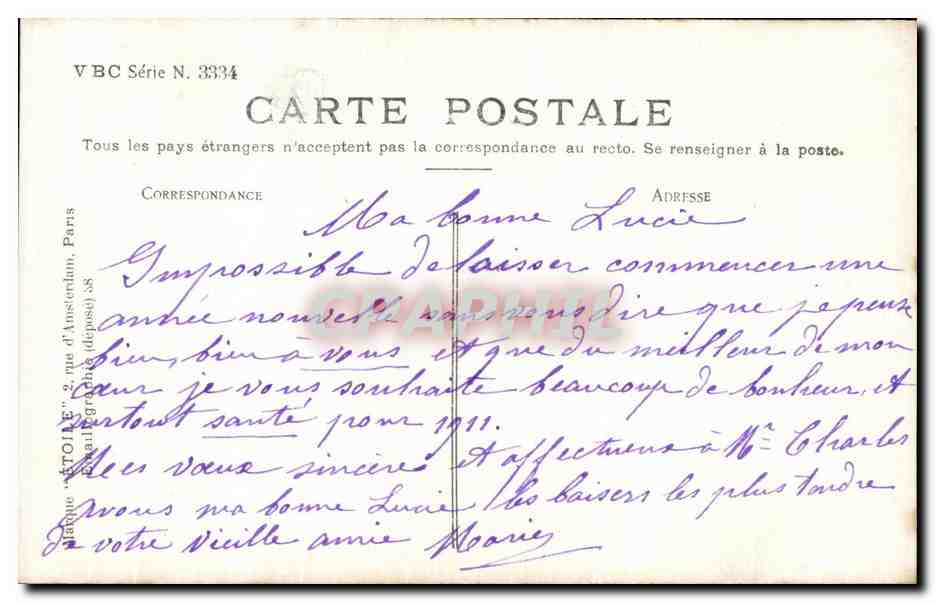 VBC Série N. 3334
CARTE POSTALE
Tous les pays étrangers n'acceptent pas la correspondance au recto. Se renseigner à la poste.
CORRESPONDANCE
ADRESSE
Ma bonne Lucie
Impossible de laisser commencer une
année nouvelle sans vous dire que je pense
bien, bien à vous et que du meilleur de mon
cœur je vous souhaite beaucoup de bonheur, et
surtout santé, pour 1911.
Mes vœux sincères et affectueux à Mr Charles
à vous ma bonne Lucie les baisers les plus tendre
de votre vieille amie Marie
Marque "ÉTOILE" 2, rue d'Amsterdam, Paris
Emaillographie (déposé) 38
CPAPHIL